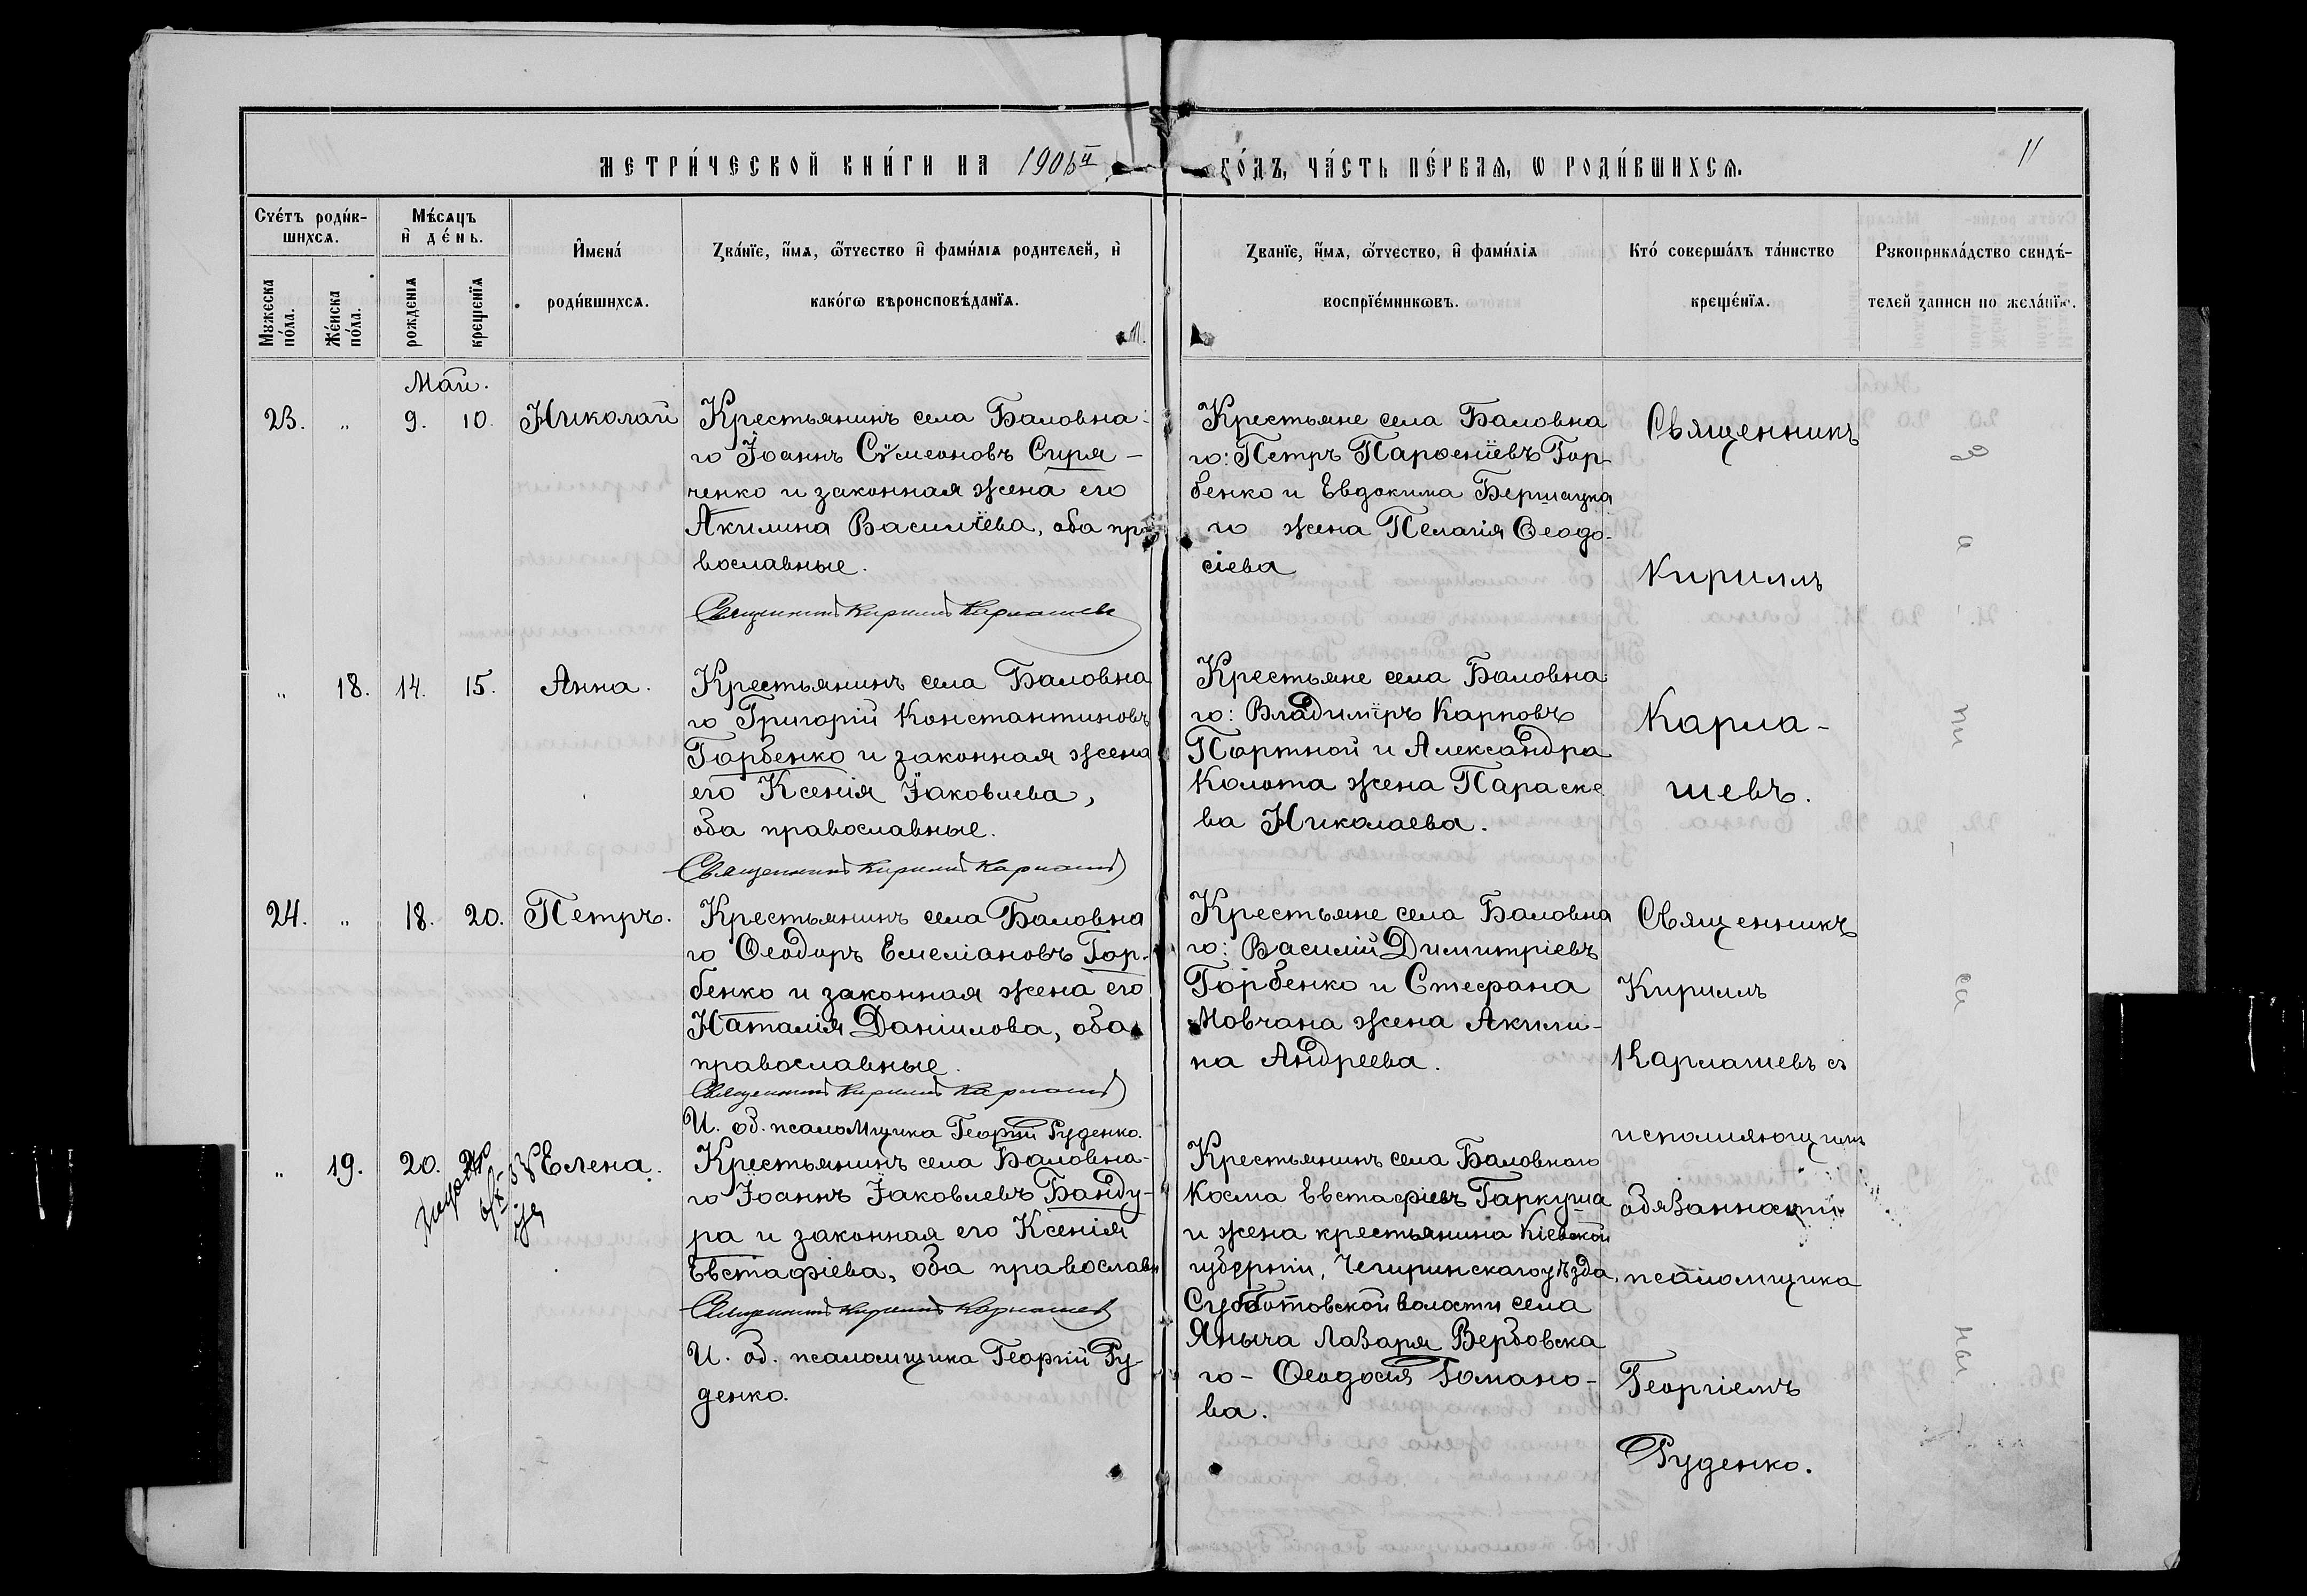 МЕТРИ́ЧЕСКОЙ КНИ́ГИ НА 1906й ГО́ДЪ, ЧА́СТЬ ПЕ́РВАЯ, Ѡ РОДИ́ВШИХСЯ.
11
Сче́тъ роди́в-
шихся.
Мѣ́сяцъ
и҆ де́нь.
И҆мена́
роди́вшихся.
Ꙁва́нїе, и҆́мя, ѻ҆́тчество и҆ фами́лїа родителей, и҆
како́гѡ вѣроисповѣ́данїя.
Ꙁванїе, и҆́мя, ѻ҆́тчество, и҆ фами́лїя
воспрїе́мниковъ.
Кто́ соверша́лъ та́инство
креще́нїя.
Рꙋкоприкла́дство свидѣ́-
телей ꙁаписи по жела́нїю.
Мꙋжеска
по́ла.
Же́нска
по́ла.
рожденїя
крещенїя
Май.
23. " 9. 10. Николай
Крестьянинъ села Баловна-
го Іоаннъ Сѵмеоновъ Сиря-
ченко и законная жена его
Акилина Васильева, оба пра
вославные.
Священникъ Кириллъ Кармашевъ
Крестьяне села Баловна
го: Петръ Парѳеніевъ Гор-
бенко и Евдокима Бершацка
го жена Пелагія Ѳеодо-
сіева
Священникъ
Кириллъ
Карма-
шевъ.
" 18. 14. 15. Анна.
Крестьянинъ села Баловна
го Григорій Константиновъ
Горбенко и законная жена
его Ксенія Іаковлева,
оба православные.
Священникъ Кириллъ Кармашевъ
Крестьяне села Баловна
го: Владиміръ Карповъ
Портной и Александра
Колота жена Параске
ва Николаева.
24. " 18. 20. Петръ.
Крестьянинъ села Баловна
го Ѳеодоръ Емеліановъ Гор-
бенко и законная жена его
Наталія Даніилова, оба
православные.
Священникъ Кириллъ Кармашевъ
И. об. псаломщика Георгій Руденко.
Крестьяне села Баловна
го: Василій Димитріевъ
Горбенко и Стефана
Мовчана жена Акили-
на Андреева.
Священникъ
Кириллъ
Кармашевъ съ
исполняющимъ
обязанности
псаломщика
Георгіемъ
Руденко.
" 19. 20. Елена.
Крестьянинъ села Баловна-
го Іоаннъ Іаковлевъ Банду-
ра и законная его Ксенія
Евстафіева, оба православн
Священникъ Кириллъ Кармашевъ
И. об. псаломщика Георгій Ру-
денко.
Крестьянинъ села Баловного
Косма Евстафіевъ Гаркуша
и жена крестьянина Кіевской
губерніи, Чигиринскаго уѣзда,
Субботовской волости села
Яныча Лазаря Вербовска
го - Ѳеодосія Романо-
ва.